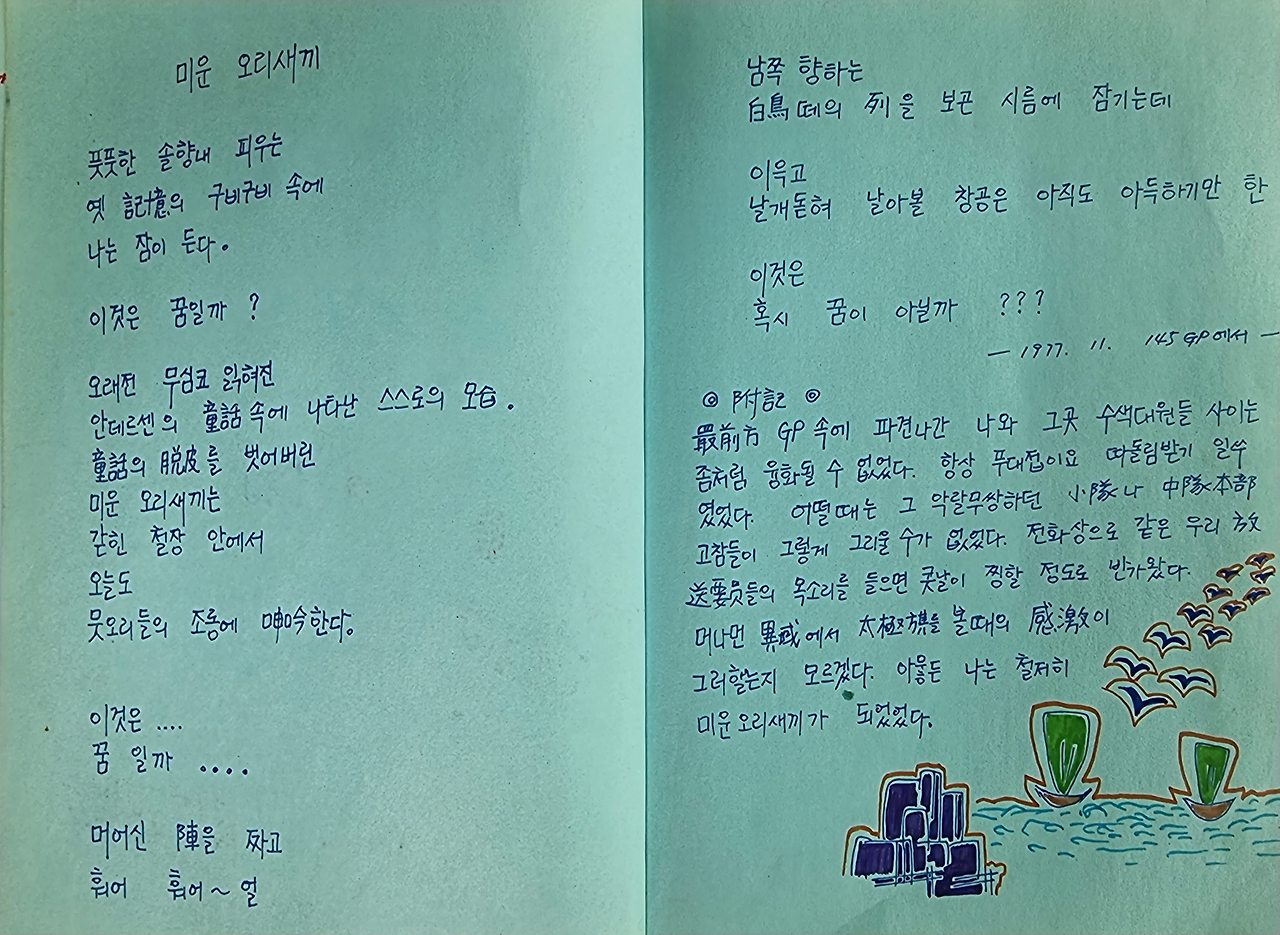 미운 오리새끼
풋풋한 솔향내 피우는
옛 記憶의 구비구비 속에
나는 잠이 든다.
이것은 꿈일까 ?
오래전 무심코 읽혀진
안데르센의 童話 속에 나타난 스스로의 모습.
童話의 脫皮를 벗어버린
미운 오리새끼는
갇힌 철장 안에서
오늘도
뭇오리들의 조롱에 呻吟한다.
이것은 ....
꿈 일까 ....
머어신 陣을 짜고
훠어 훠어~ 얼
남쪽 향하는
白鳥떼의 列을 보곤 시름에 잠기는데
이윽고
날개돋혀 날아볼 창공은 아직도 아득하기만 한
이것은
혹시 꿈이 아닐까 ???
— 1977. 11. 145 GP에서 —
◎ 附記 ◎
最前方 GP 속에 파견나간 나와 그곳 수색대원들 사이는
좀처럼 융화될 수 없었다. 항상 푸대접이요 따돌림받기 일쑤
였었다. 어떨때는 그 악랄무쌍하던 小隊나 中隊本部
고참들이 그렇게 그리울 수가 없었다. 전화상으로 같은 우리 放
送要員들의 목소리를 들으면 콧날이 찡할 정도로 반가왔다.
머나먼 異域에서 太極旗를 볼때의 感激이
그러할는지 모르겠다. 아뭏든 나는 철저히
미운오리새끼가 되었었다.